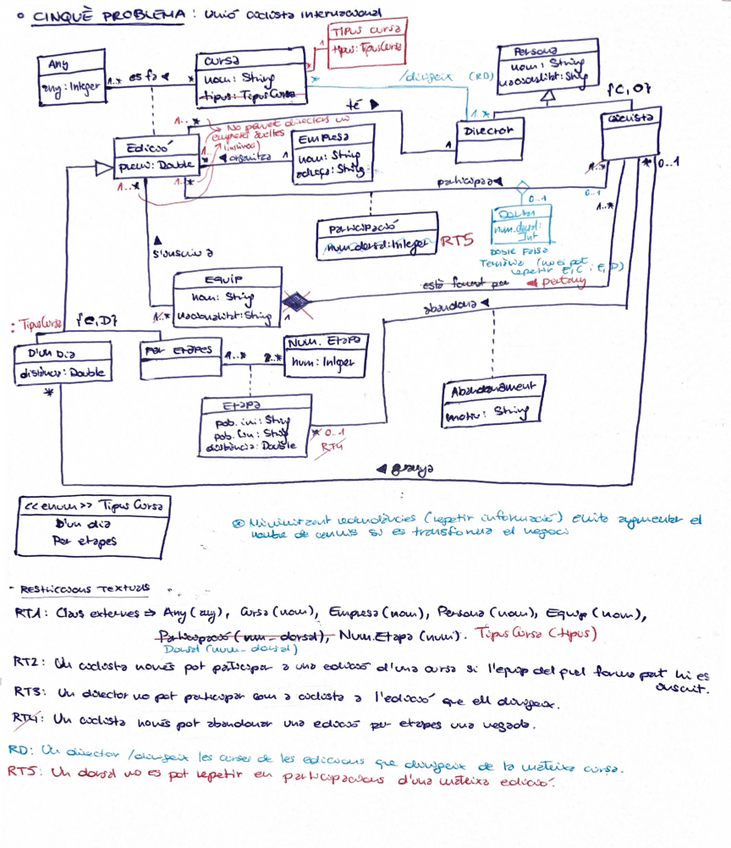 CINQUÈ PROBLEMA : Unió ciclista internacional
Tipus cursa
tipus: TipusCursa
Any
any: Integer
1..*
es fa
*
Cursa
nom: String
tipus: TipusCursa
*
1
*
/dirigeix (RD)
Persona
nom: String
nacionalitat: String
{C,O}
té
1..*
Director
1
Ciclista
Edició
premi: Double
1..*
No params directors ni
empreses soltes
(mínims)
1..*
*
organitza
1
Empresa
nom: String
adreça: String
1..*
participa
1..*
0..1
* 0..1
1..*
Participació
num.dorsal: Integer
RT5
0..1
Dorsal
num.dorsal:
Int
Doble Falsa
Ternària (no es pot
repetir E,C i E,D)
s'inscriu a
Equip
nom: String
nacionalitat: String
1..*
1
està format per
pertany
abandona
: TipusCursa
{C,D}
D'un Dia
distància: Double
Per Etapes
1..*
2..*
Num. Etapa
num: Integer
Etapa
pob. ini: String
pob. fin: String
distància: Double
* 0..1
RT4
Abandonament
motiu: String
*
guanya
<<enum>> Tipus Cursa
D'un dia
Per etapes
Minimitzant redundàncies (repetir informació) evito augmentar el
nombre de canvis si es transforma el negoci
- Restriccions Textuals
RT1: Claus externes ⇒ Any (any), Cursa (nom), Empresa (nom), Persona (nom), Equip (nom),
Participació (num_dorsal), Num.Etapa (num). TipusCursa (tipus)
Dorsal (num_dorsal)
RT2: Un ciclista només pot participar a una edició d'una cursa si l'equip del qual forma part hi es
inscrit.
RT3: Un director no pot participar com a ciclista a l'edició que ell dirigeix.
RT4: Un ciclista només pot abandonar una edició per etapes una vegada.
RD: Un director /dirigeix les curses de les edicions que dirigeix de la mateixa cursa.
RT5: Un dorsal no es pot repetir en participacions d'una mateixa edició.